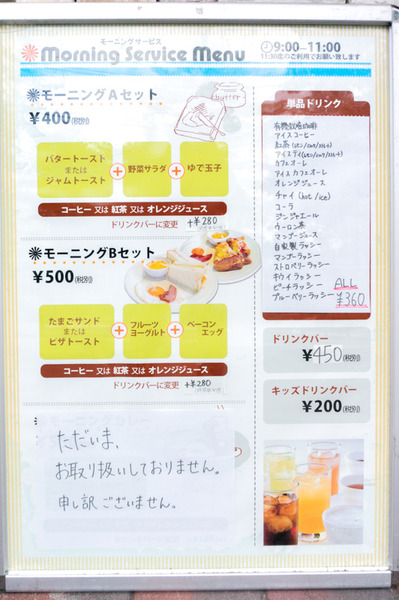 モーニングサービス
Morning Service Menu
9:00-11:00
11:30迄のご利用でお願い致します
モーニングAセット
butter
¥400(税別)
バタートースト
または
ジャムトースト
+
野菜サラダ
+
ゆで玉子
コーヒー 又は 紅茶 又は オレンジジュース
ドリンクバーに変更 +¥280
モーニングBセット
¥500(税別)
たまごサンド
または
ピザトースト
+
フルーツ
ヨーグルト
+
ベーコン
エッグ
コーヒー 又は 紅茶 又は オレンジジュース
ドリンクバーに変更 +¥280
ただいま、
お取り扱いしておりません。
申し訳ございません。
単品ドリンク
有機栽培珈琲
アイスコーヒー
紅茶(レモン/ミルク/ストレート)
アイスティ(レモン/ミルク/ストレート)
カフェオーレ
アイスカフェオーレ
オレンジジュース
チャイ (hot/ice)
コーラ
ジンジャエール
ウーロン茶
マンゴージュース
自家製ラッシー
マンゴーラッシー
ストロベリーラッシー
キウイラッシー
ピーチラッシー
ブルーベリーラッシー
ALL
¥360
ドリンクバー
¥450(税別)
キッズドリンクバー
¥200(税別)